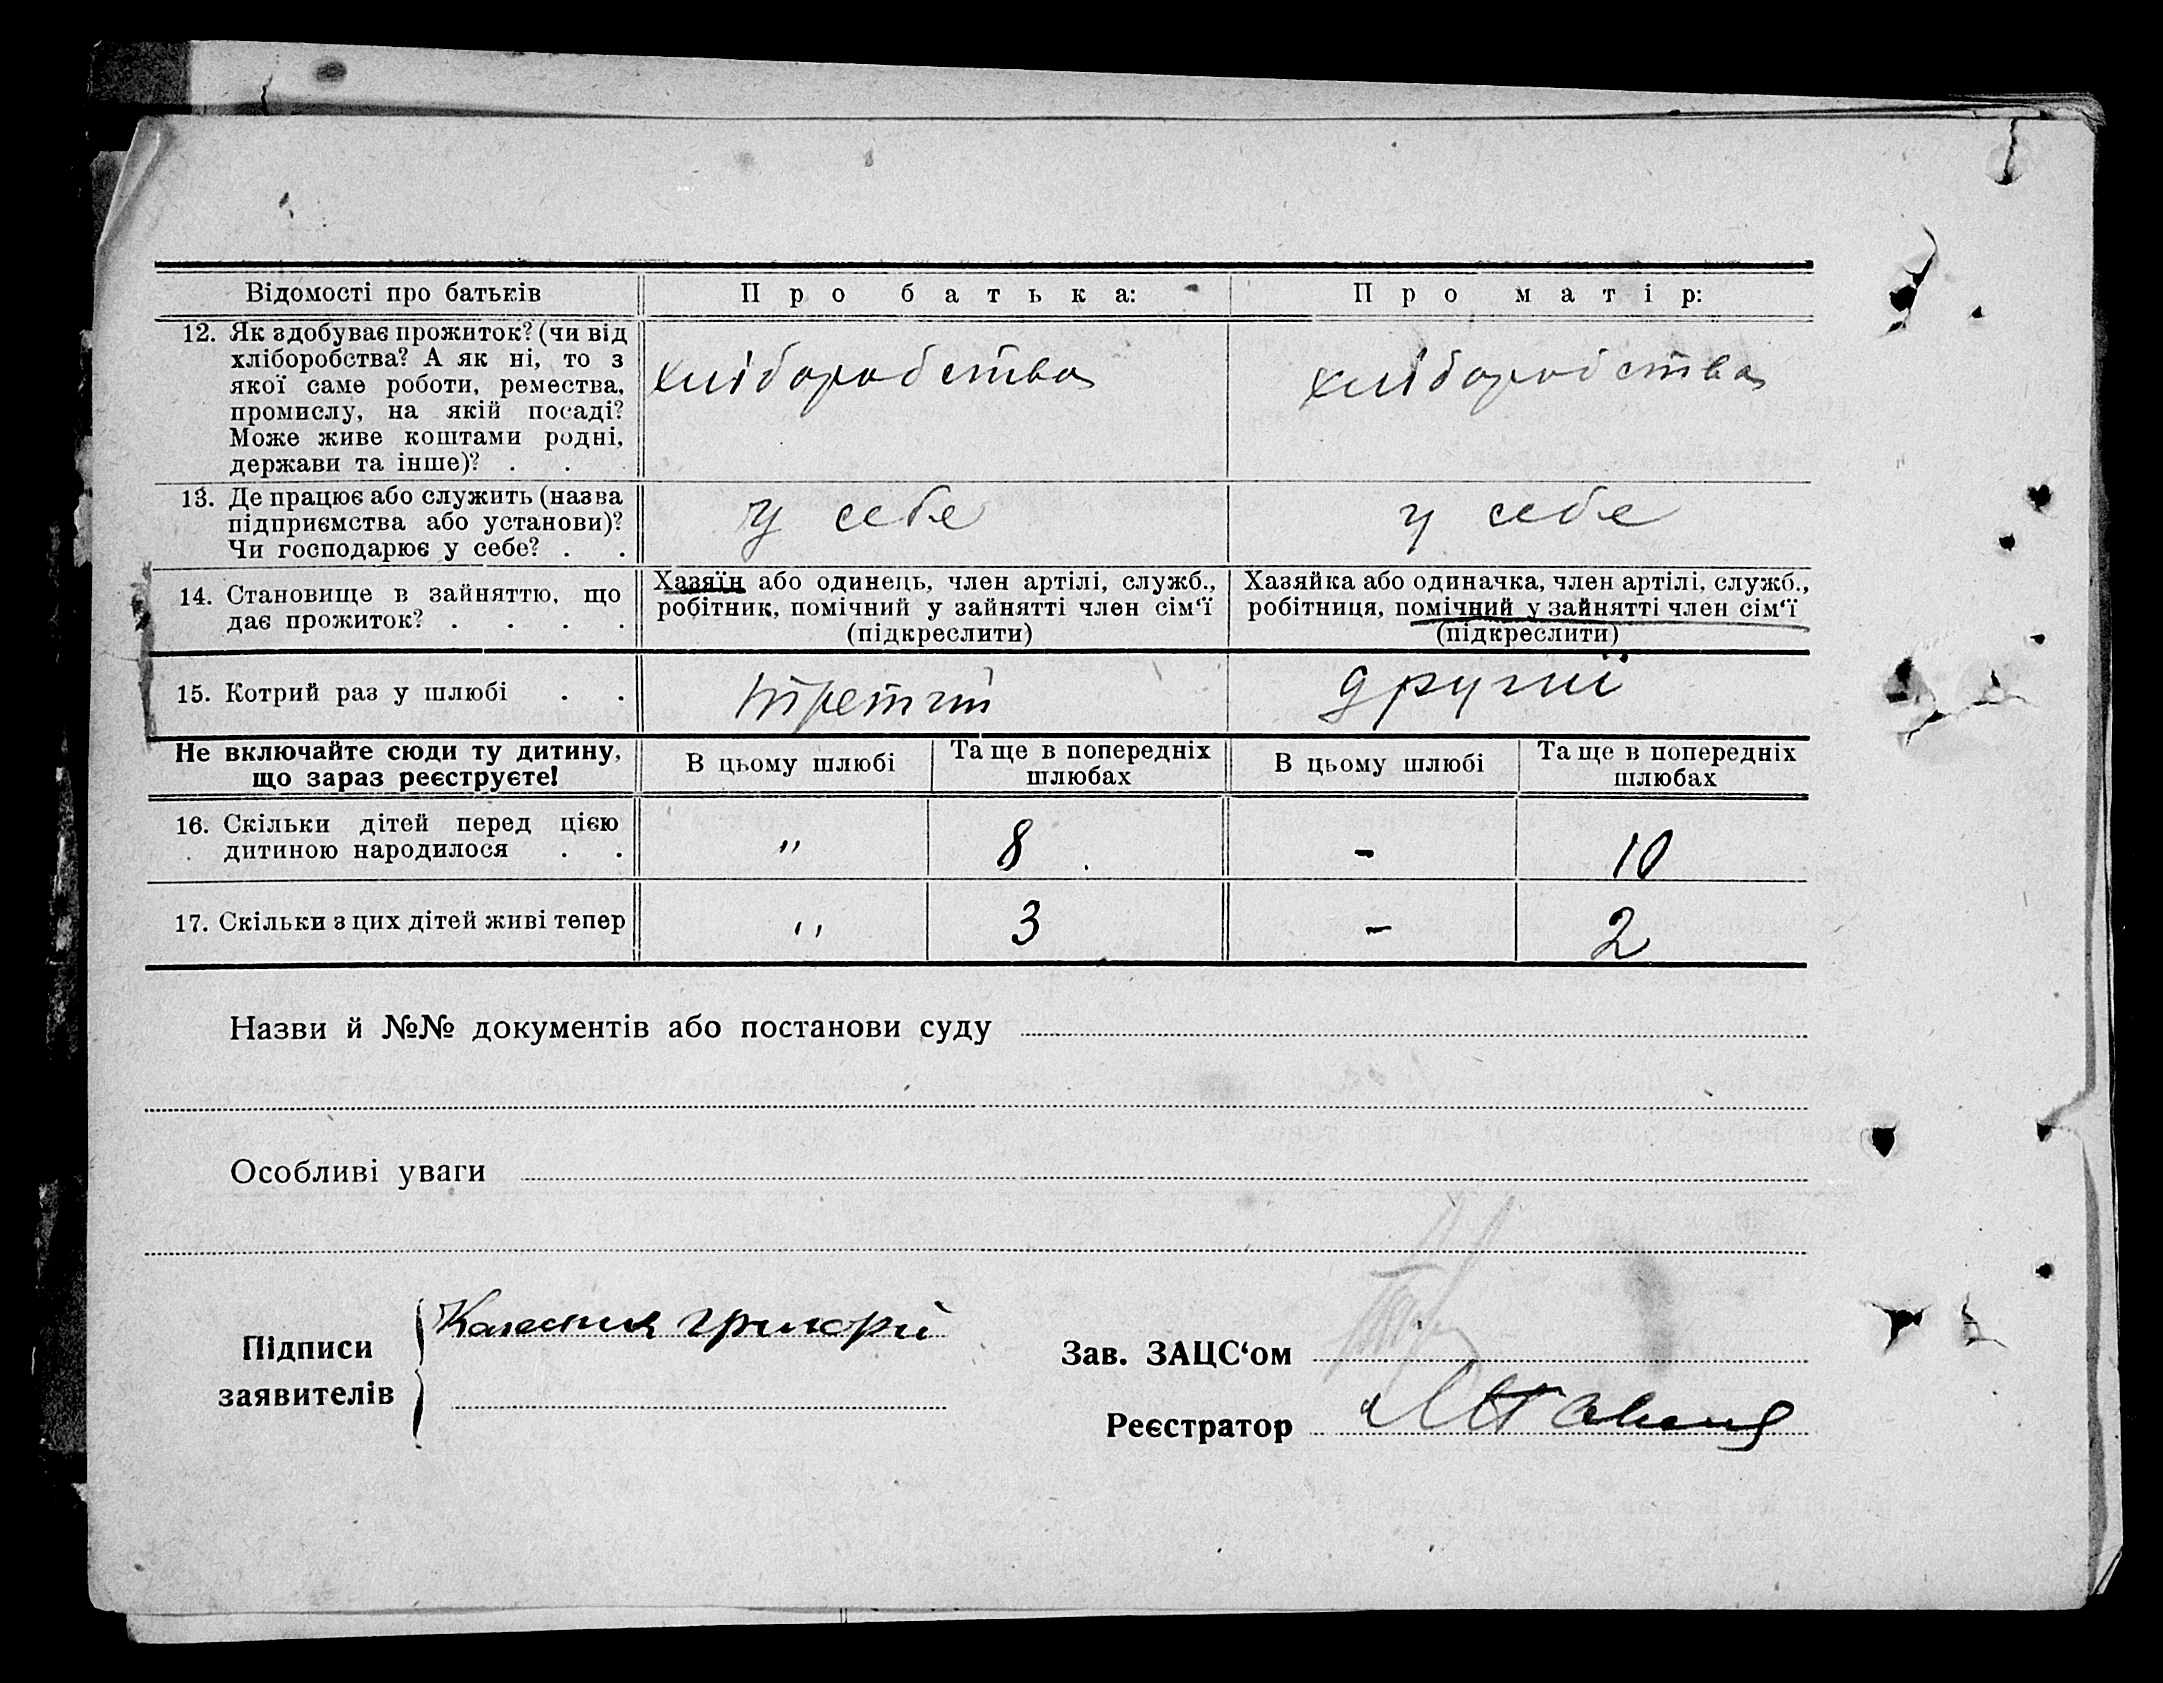 Відомості про батьків Про батька: Про матір:
12. Як здобуває прожиток? (чи від
хліборобства? А як ні, то з
якої саме роботи, ремества,
промислу, на якій посаді?
Може живе коштами родні,
держави та інше)? . .
хліборобства хліборобства
13. Де працює або служить (назва
підприємства або установи)?
Чи господарює у себе? . .
у себе у себе
14. Становище в зайняттю, що
дає прожиток? . . . .
Хазяїн або одинець, член артілі, служб.,
робітник, помічний у зайнятті член сім‘ї
(підкреслити)
Хазяйка або одиначка, член артілі, служб.,
робітниця, помічний у зайнятті член сім‘ї
(підкреслити)
15. Котрий раз у шлюбі . . третий другий
Не включайте сюди ту дитину,
що зараз реєструєте!
В цьому шлюбі
Та ще в попередніх
шлюбах
В цьому шлюбі
Та ще в попередніх
шлюбах
16. Скільки дітей перед цією
дитиною народилося . .
" 8 - 10
17. Скільки з цих дітей живі тепер " 3 - 2
Назви й №№ документів або постанови суду
Особливі уваги
Підписи
заявителів
Колесник Григорій
Зав. ЗАЦС‘ом
Реєстратор